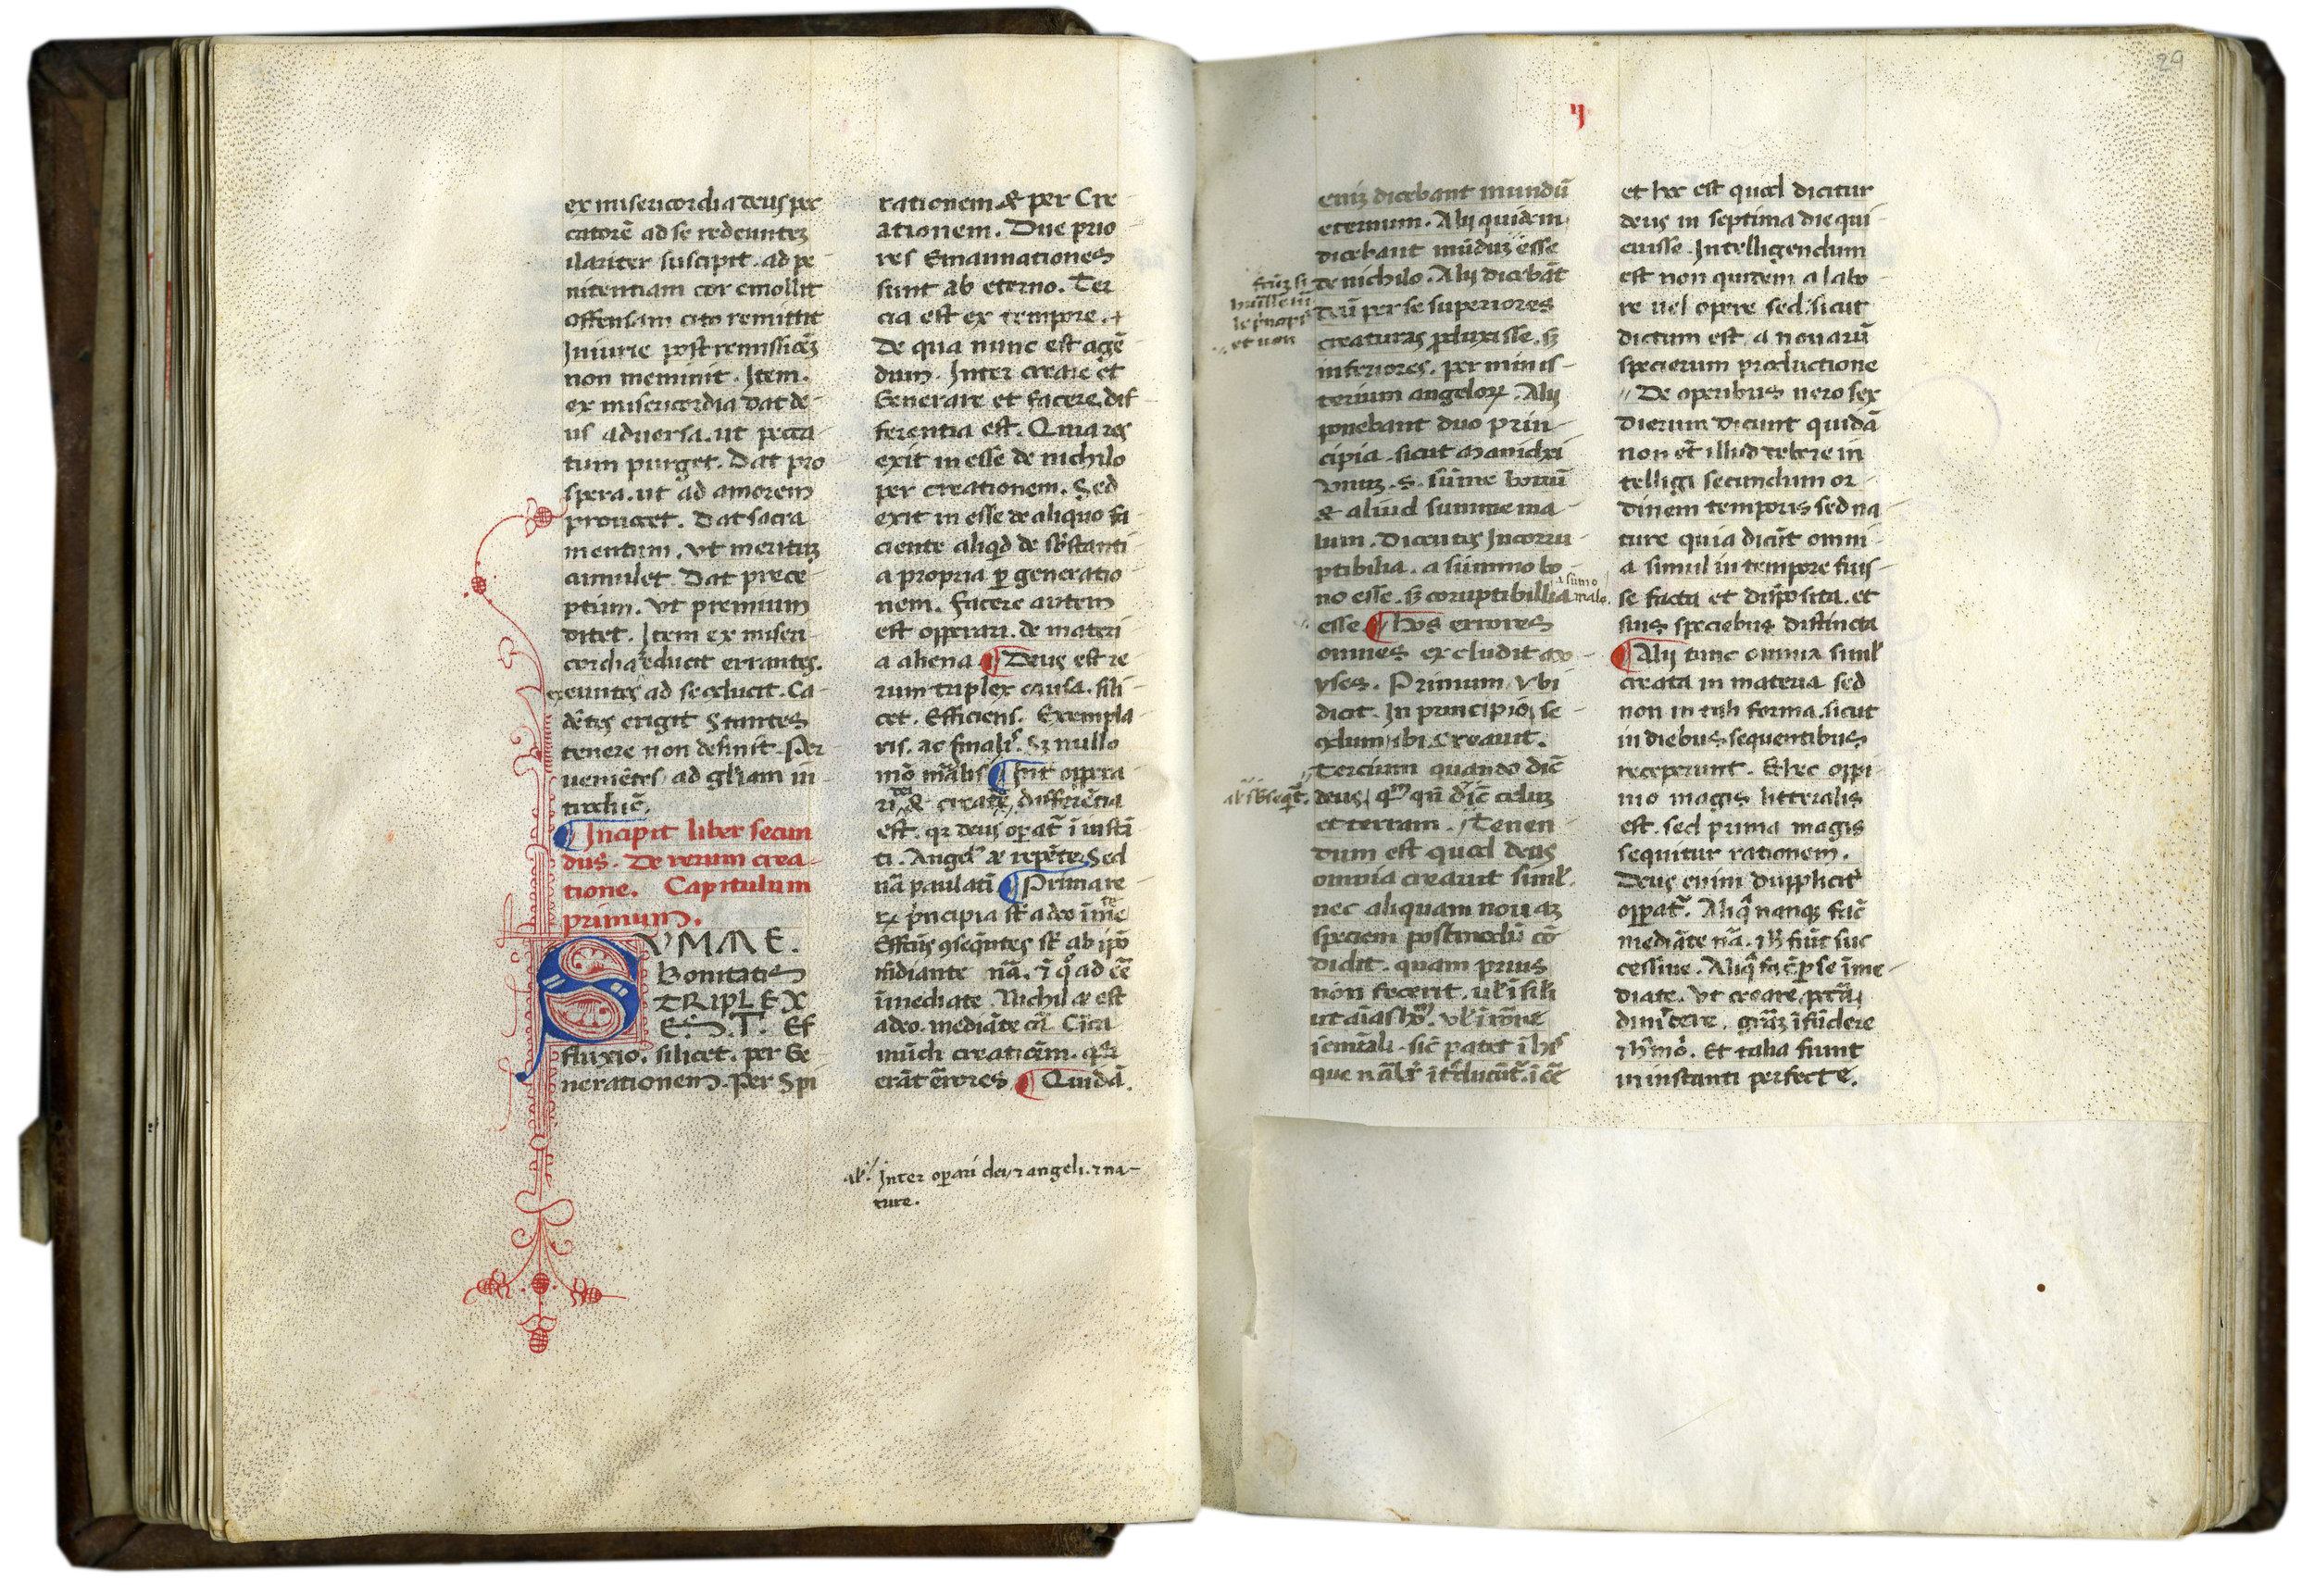 ex misericordia deus pec
catorē ad se redeuntez
ilariter suscipit. ad pe-
nitentiam cor emollit
offensam cito remittit
Iniurie post remissiōez
non meminit. Item.
ex misericordia dat de-
us aduersa. ut pecca-
tum purget. Dat pro
spera. ut ad amorem
prouocet. Dat sacra
mentum. vt meritum
cumulet. Dat prece-
ptum. vt premium
ditet. Item ex miseri-
cordia reducit errantes.
exeuntes ad se educit. Ca-
dētes erigit Stantes
tenere non desinit. Per
ueniētes ad gl'iam in-
troduc̄.
¶ Incipit liber secun
dus. De rerum crea-
tione. Capitulum
primum.
SVMME.
Bonitatis
TRIPLEX
EST. Ef
fluxio. silicet. per Ge-
nerationem. Per Spi
rationem & per Cre-
ationem. Due prio
res Emannationes
sunt ab eterno. Ter
cia est ex tempore.
De qua nunc est agē
dum. Inter creare et
Generare et facere dif
ferentia est. Quia res
exit in esse de nichilo
per creationem. Sed
exit in esse de aliquo fa
ciente aliqd de sb̄stanti-
a propria ꝑ generatio
nem. Facere autem
est opperari. de materi
a aliena ¶ Deus est re
rum triplex causa. sili-
cet. Efficiens. Exempla-
ris. ac finalis. Sꝫ nullo
mō māl'is ¶ Int̄ oppera
ri dei & creatē differētia
est. qꝛ deus oꝑat̄ ī instā
ti. Angel' repēte Sed
nā paulatī ¶ Prima re
ꝝ pricipia st̄ a deo īme
Effctus ꝯseq̄ntes st̄ ab ipō
īmediate. Nichil est
a deo. mediāte
mūdi creatiōem. 
erāt ērrores ¶ Quidā.
al'. Inter oꝑari dei ⁊ angeli. ⁊ na-
ture.
29
ij
enīz dicebant mundū
eternum. Alij quidem
dicebant mūduz esse
de nichilo. Alij dicebāt
deū per se superiores
creaturas ꝓduxisse. sꝫ
inferiores. per minis-
terium angeloꝝ. Alij
ponebant duo prin-
cipia. sicut manichei
vnuz. s. sūme bonū
& aliud summe ma-
lum. Dicentes Incorru-
ptibilia. a summo bo-
no esse. sꝫ coruptibillia
a sūmo malo.
esse ¶ Hos errores
omnes excludit mo-
yses. Primum vbi
dicit. In principio, se
cdum, ibi. Creauit.
Tercium quando dic̄
deus,
et terram. Tenen-
dum est quod deus
omnia creauit simł.
nec aliquam nouam
speciem postmodū cō
didit. quam prius
non fecerit.
et hoc est quod dicitur
deus in septima die qui-
euisse. Intelligendum
est non quidem a labo-
re uel opere sed. sicut
dictum est. a nouarū
specierum productione
De operibus uero sex
dierum dicunt quidā
non et illud debere in
telligi secundum or-
dinem temporis sed na-
ture quia dicūt omni-
a simul in tempore fuis-
se facta et disposita. et
suis speciebus distincta
¶ Alij tunc omnia simł
creata in materia sed
non in tali forma. sicut
in diebus sequentibus
receperunt. Et hec oppi-
nio magis litteralis
est. sed prima magis
sequitur rationem.
Deus enim dupplicit̄
opꝑat̄. Aliq̄ nanqꝫ fac̄
mediāte nā. fiūt suc
cessiue. Aliq̄ fac̄ ꝑ se īme-
diate. Vt creare
dimictere. grāz īfūdere
Et talia fiunt
in instanti perfecte.